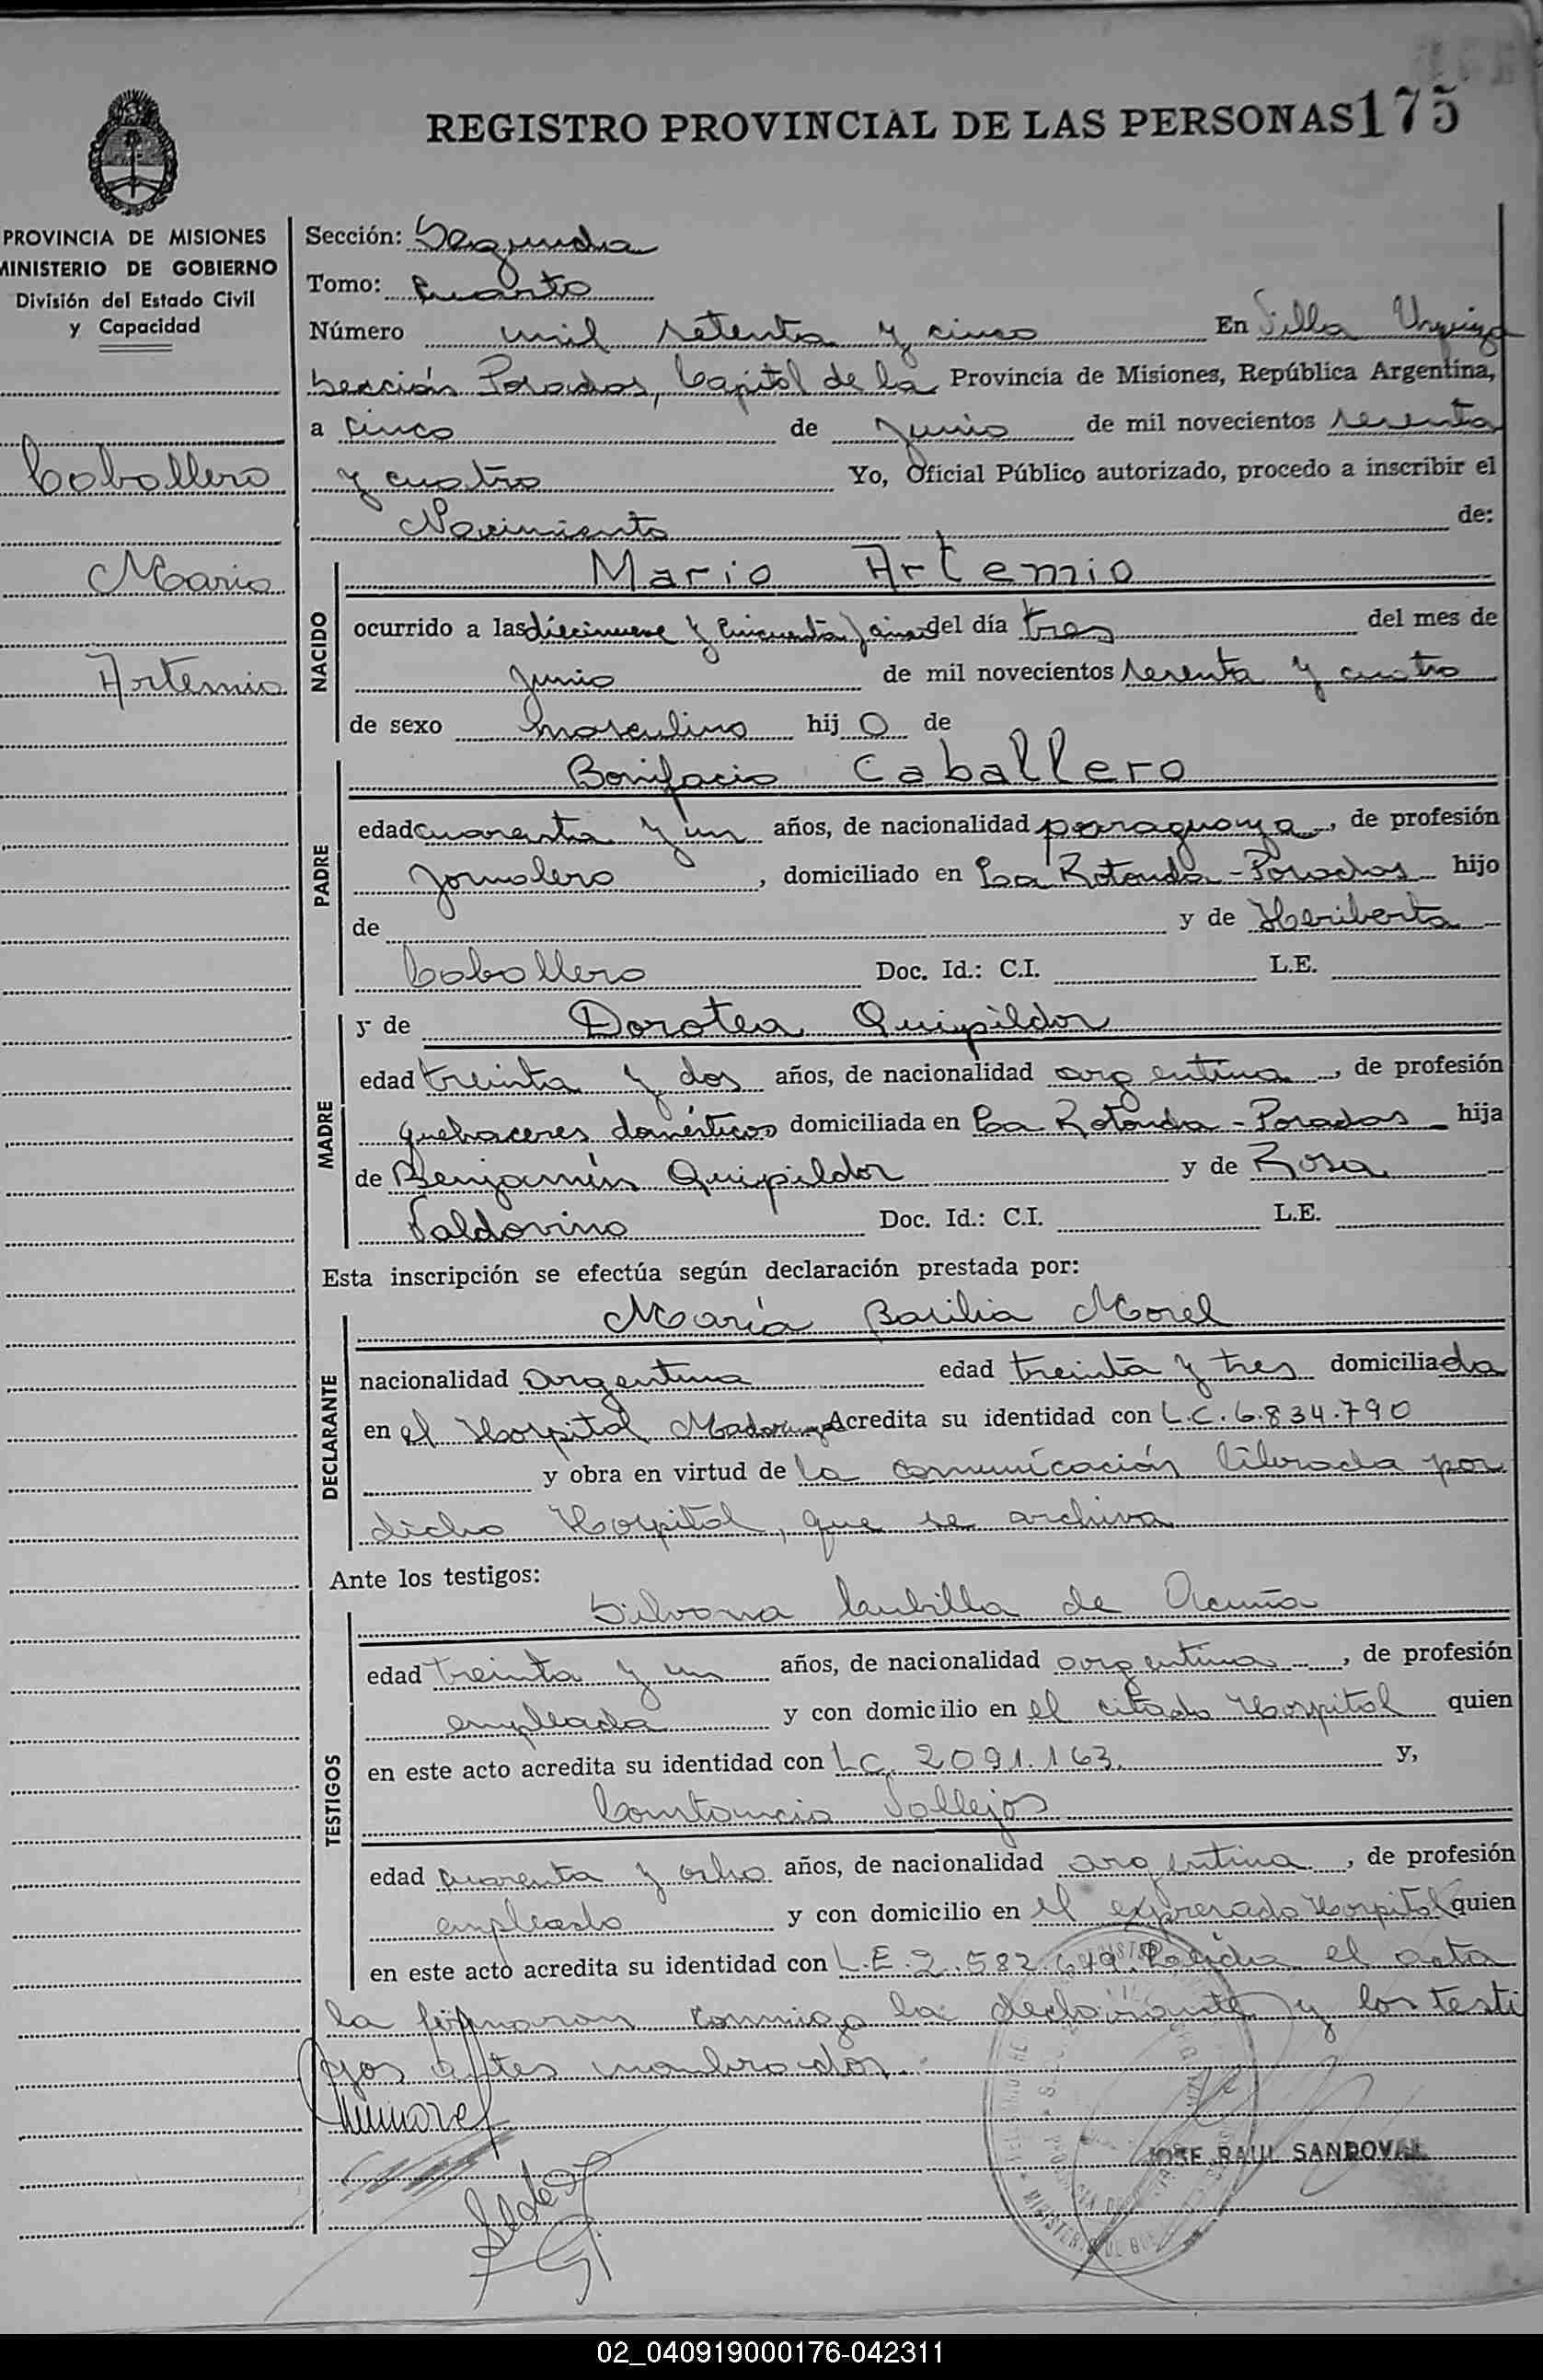 REGISTRO PROVINCIAL DE LAS PERSONAS 175
PROVINCIA DE MISIONES
MINISTERIO DE GOBIERNO
División del Estado Civil
y Capacidad
Caballero
Mario
Artemio
Sección: Segunda
Tomo: Cuarto
Número mil setenta y cinco En Villa Urquiza
Sección Posadas, Capital de la Provincia de Misiones, República Argentina,
a cinco de Junio de mil novecientos sesenta
y cuatro Yo, Oficial Público autorizado, procedo a inscribir el
Nacimiento de:
NACIDO
Mario Artemio
ocurrido a las diecinueve y cincuenta del día tres del mes de
Junio de mil novecientos sesenta y cuatro
de sexo masculino hij o de
PADRE
Bonifacio Caballero
edad cuarenta y un años, de nacionalidad paraguaya, de profesión
Jornalero, domiciliado en La Rotonda - Posadas hijo
de y de Heriberta
Caballero Doc. Id.: C.I. L.E.
MADRE
y de Dorotea Quipildor
edad treinta y dos años, de nacionalidad argentina, de profesión
quehaceres domésticos domiciliada en La Rotonda - Posadas hija
de Benjamín Quipildor y de Rosa
Valdovino Doc. Id.: C.I. L.E.
Esta inscripción se efectúa según declaración prestada por:
DECLARANTE
María Basilia Morel
nacionalidad argentina edad treinta y tres domiciliada
en el Hospital Madariaga Acredita su identidad con L.C. 6.834.790
y obra en virtud de la comunicación librada por
dicho Hospital, que se archiva
Ante los testigos:
TESTIGOS
Silvana Cubilla de Acuña
edad treinta y un años, de nacionalidad argentina, de profesión
empleada y con domicilio en el citado Hospital quien
en este acto acredita su identidad con L.C. 2091.163. y,
Constancio Vallejos
edad cuarenta y ocho años, de nacionalidad argentina, de profesión
empleado y con domicilio en el expresado Hospital quien
en este acto acredita su identidad con L.E. 2.582.649. Leída el acta
la firmaron conmigo la declarante y los testi
gos antes nombrados.
JOSE RAUL SANDOVAL
02_040919000176-042311